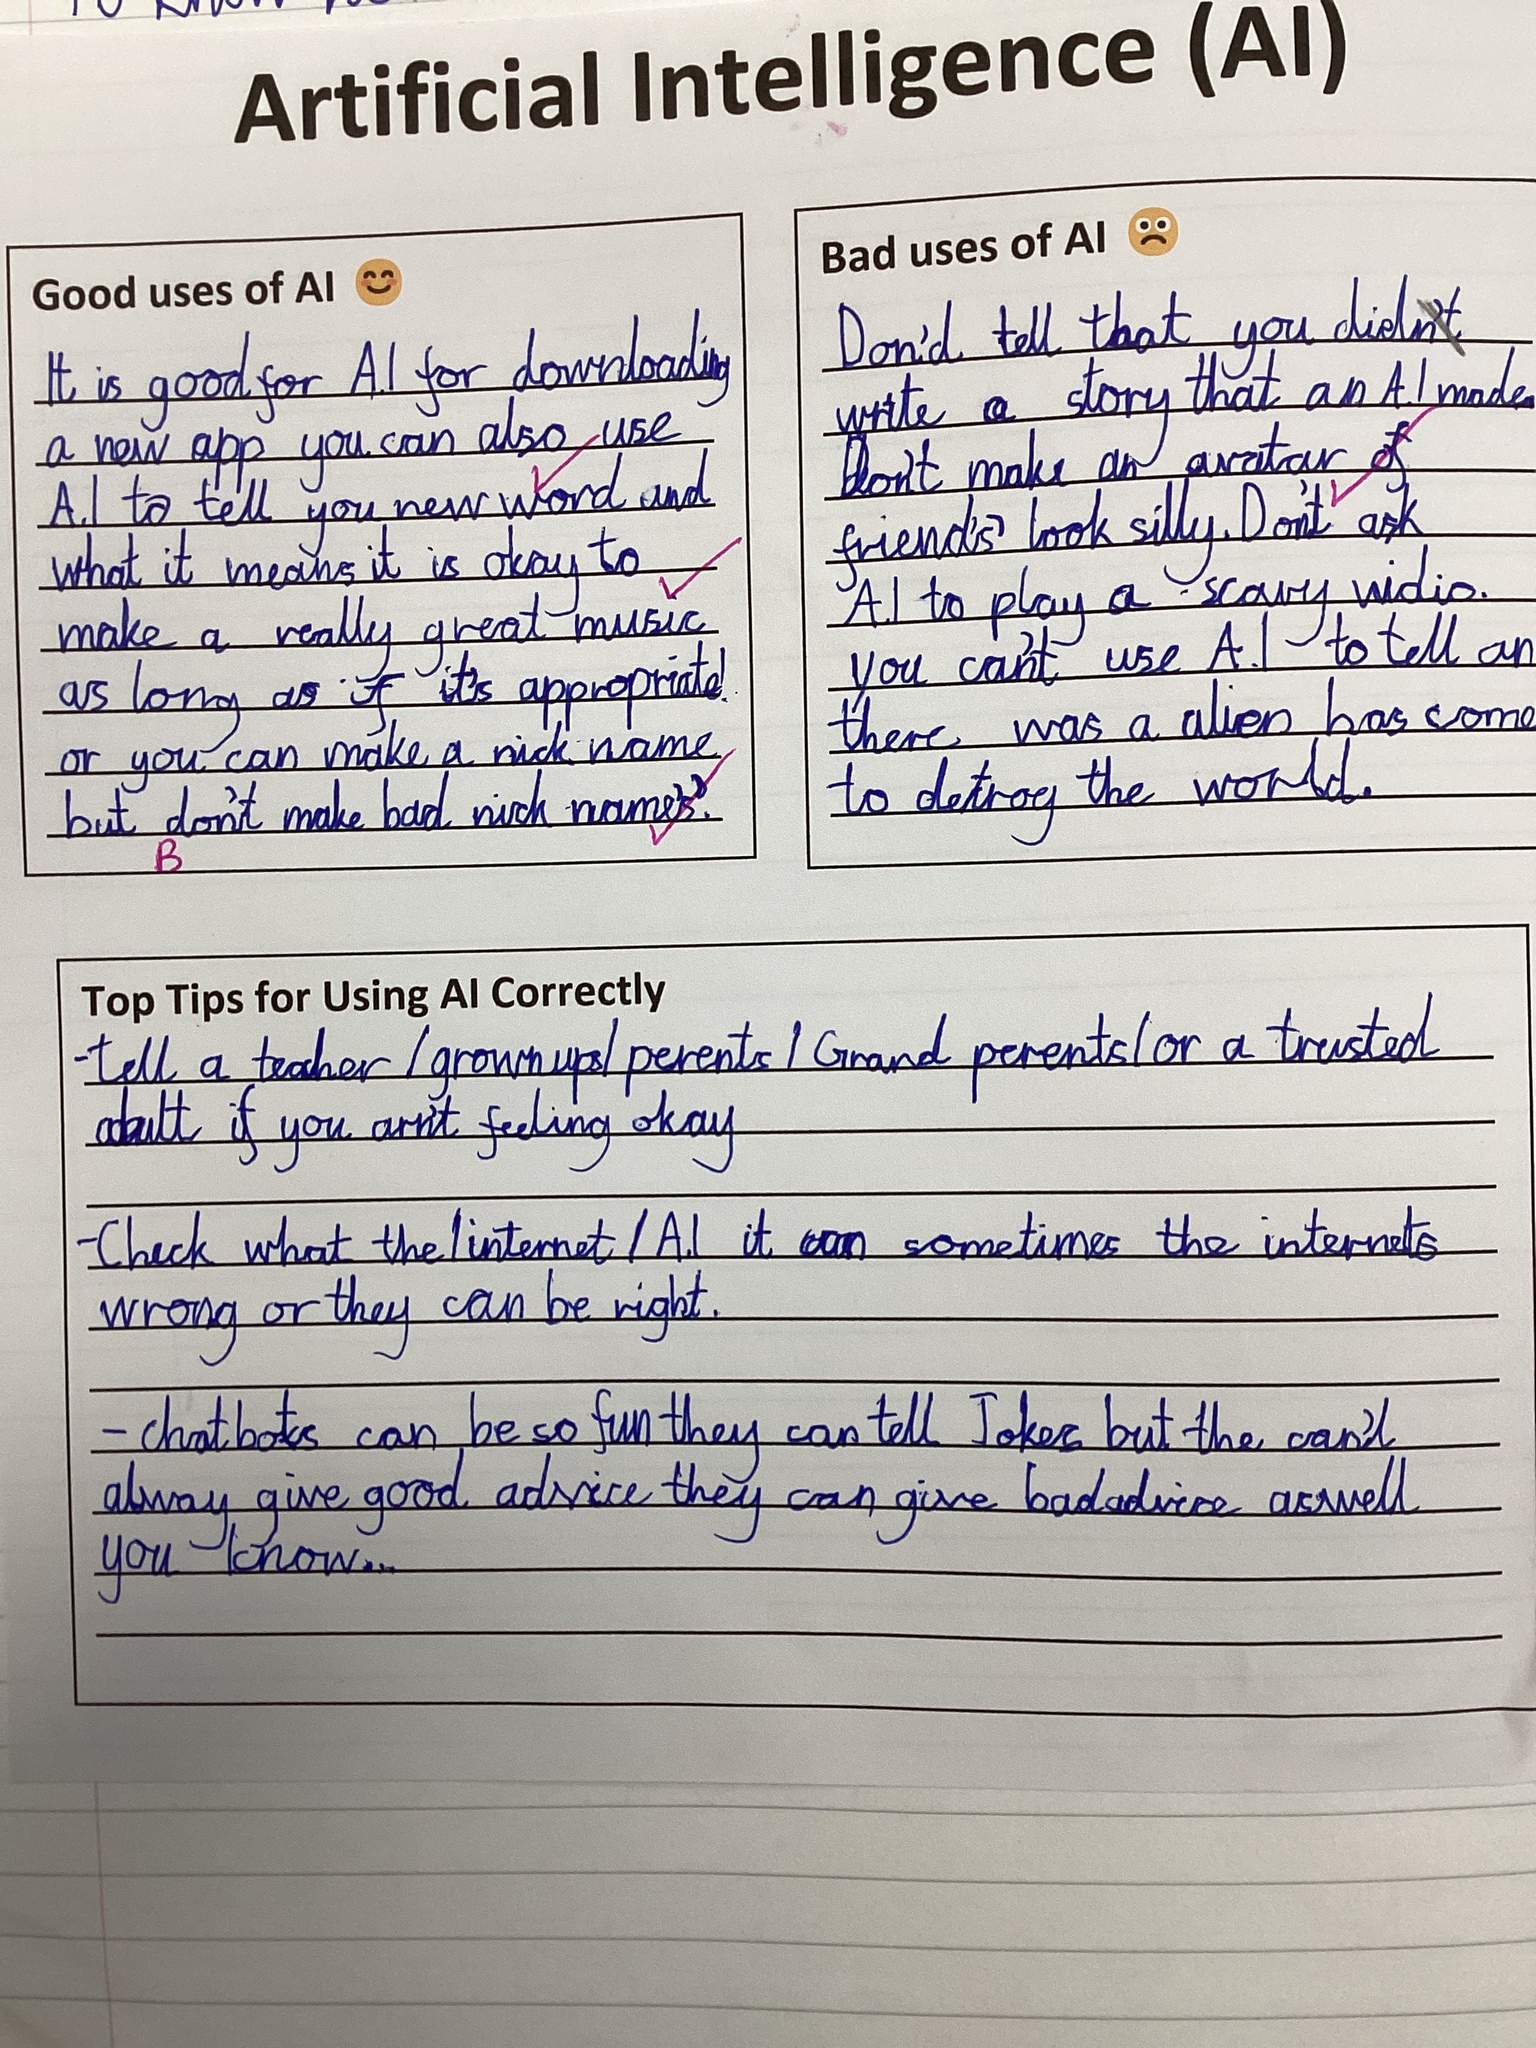 Artificial Intelligence (AI)
Good uses of AI 😊
It is good for A.I for downloading
a new app you can also use
A.I to tell you new word and
what it means it is okay to
make a really great music
as long as if it's appropriate!
or you can make a nick name
but don't make bad nick names'.
B
Bad uses of AI
Don'd tell that you did
write a story that an A.I made.
Don't make an avatar of
friend's' look silly. Don't ask
A.I to play a scary vidio.
you can't use A.I to tell an
there was a alien has come
to detroy the world.
Top Tips for Using AI Correctly
-tell a teacher / grown ups / perents / Grand perents / or a trusted
adault if you arn't feeling okay
-Check what the / internet / A.I it can sometimes the internets
wrong or they can be right.
- chatbots can be so fun they can tell Jokes but the can'd
alway give good advice they can give bad advice aswell
you know...